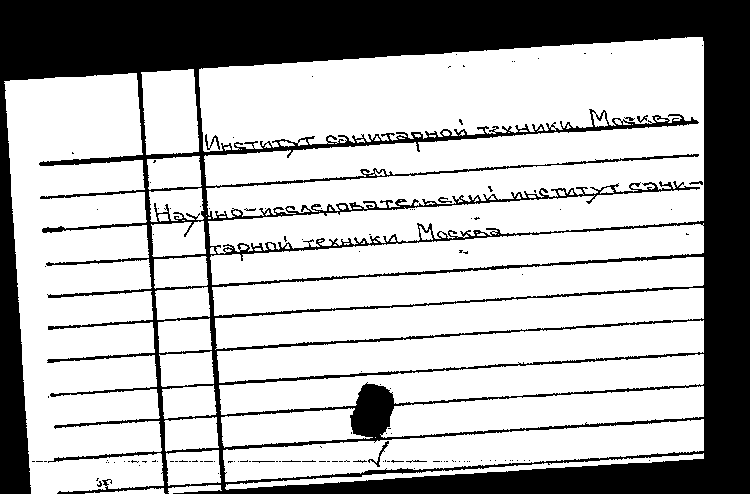 Институт санитарной техники. Москва.
см.
Научно-исследовательский институт сани-
тарной техники. Москва